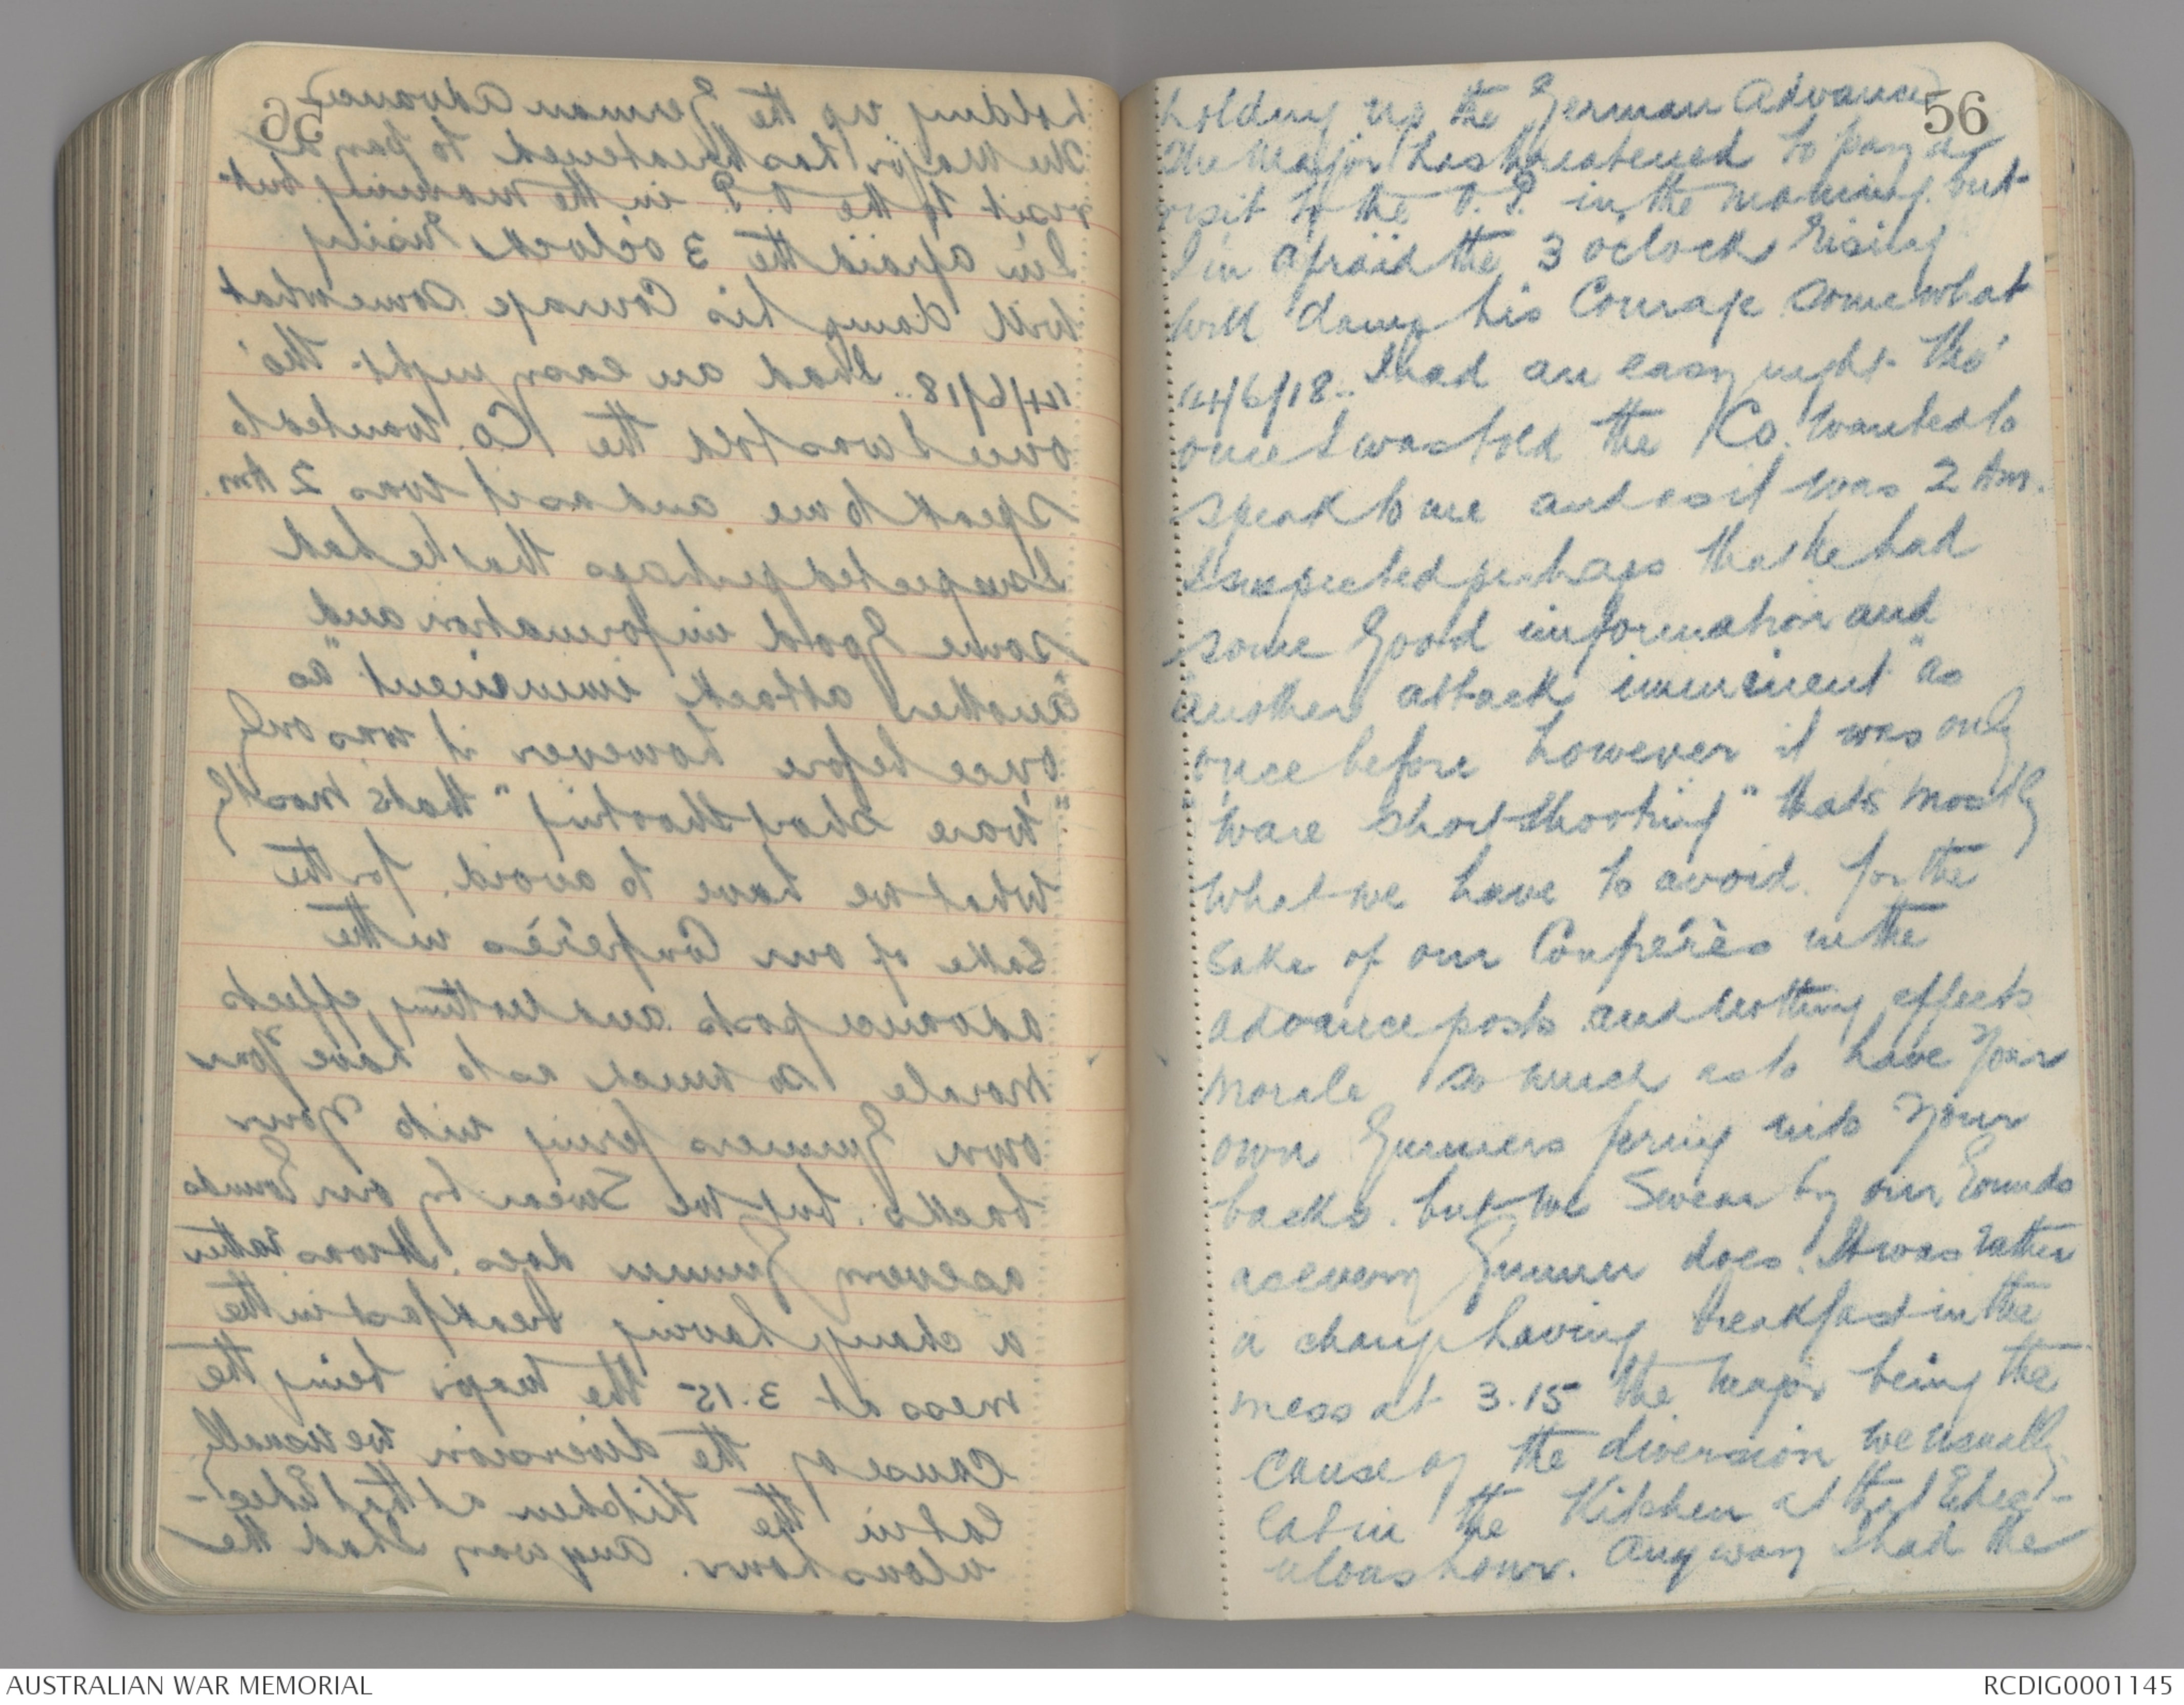 56
holding up the German Advance
The Major has threatened to pay a
visit to the O.P. in the morning but
I'm afraid the 3 oclock rising
will damp his Courage somewhat
14/6/18.. I had an easy night tho'
once I was told the Co. wanted to
speak to me and as it was 2 Am.
I suspected perhaps that he had
some good information and
"another attack imminent" as
once before however it was only
"ware short shooting" that's mostly
what we have to avoid for the
sake of our Confrères in the
advance posts and nothing effects
morale so much as to have your
own Gunners firing into your
backs. but we Swear by our rounds
as every Gunner does. It was rather
a change having breakfast in the
mess at 3.15 the Major being the
cause of the diversion we usually
eat in the Kitchen at that
hour. Anyway I had the
AUSTRALIAN WAR MEMORIAL
RCDIG0001145